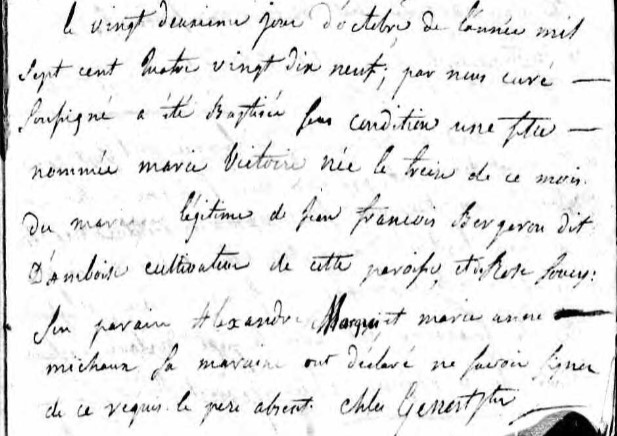 le vingt deuxieme jour d'octobre de l'année mil
sept cent quatre vingt dix neuf, par nous curé —
soussigné a été Baptisée sous condition une fille —
nommée marie Victoire née le treize de ce mois.
Du mariage légitime de jean francois Bergeron dit
D'amboise cultivateur de cette paroisse, et de Rose Soucy:
Son parain Alexandre et marie anne —
michaux sa maraine ont déclaré ne savoir signer
de ce requis. le pere absent. Chles Genest ptr